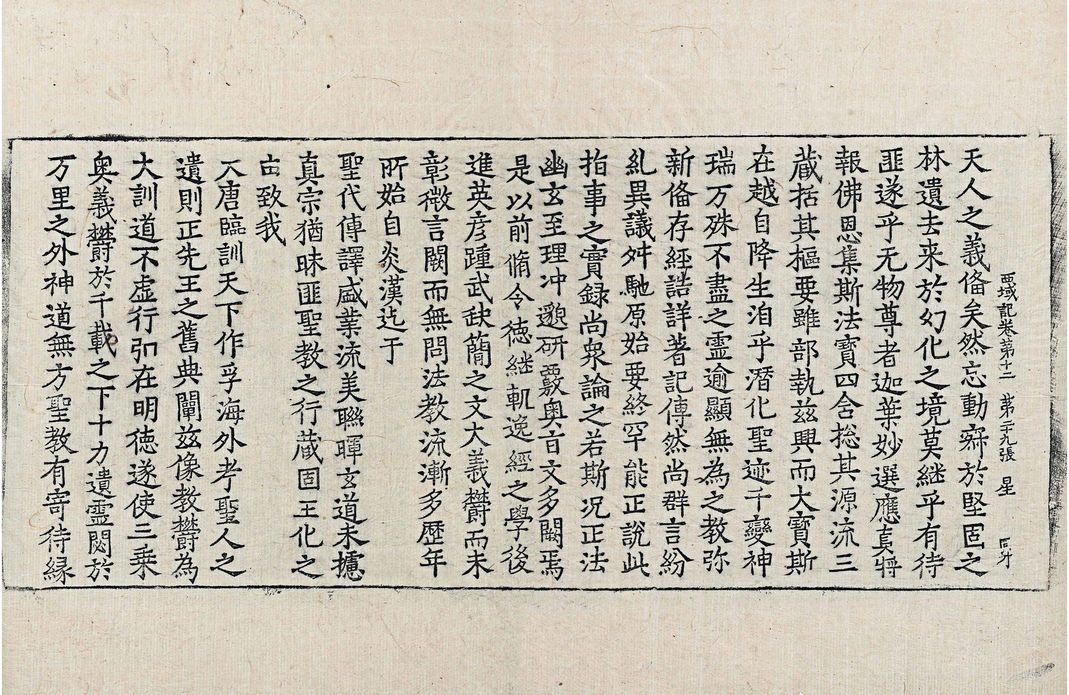 西域記卷第十二　第二十九張　星
天人之義俻矣然忘動寂於堅固之
林遺去来於幻化之境莫継乎有待
匪遂乎无物尊者迦葉妙選應真將
報佛恩集斯法寶四含揔其源流三
藏括其樞要雖部執兹興而大寶斯
在越自降生洎乎潜化聖迹千變神
瑞万殊不盡之靈逾顯無為之教弥
新俻存經誥詳著記傳然尚群言紛
糺異議舛馳原始要終罕能正說此
指事之實録尚衆論之若斯况正法
幽玄至理冲邈研覈奥旨文多闕焉
是以前脩令徳継軌逸經之學後
進英彦踵武缺簡之文大義欝而未
彰微言闕而無問法教流漸多歷年
所始自炎漢迄于
聖代傳譯盛業流美聮暉玄道未攄
真宗猶昧匪聖教之行藏固王化之
由致我
大唐臨訓天下作孚海外考聖人之
遺則正先王之舊典闡兹像教欝為
大訓道不虚行弘在明徳遂使三乗
奥義欝於千載之下十力遺靈閟於
万里之外神道無方聖教有寄待縁